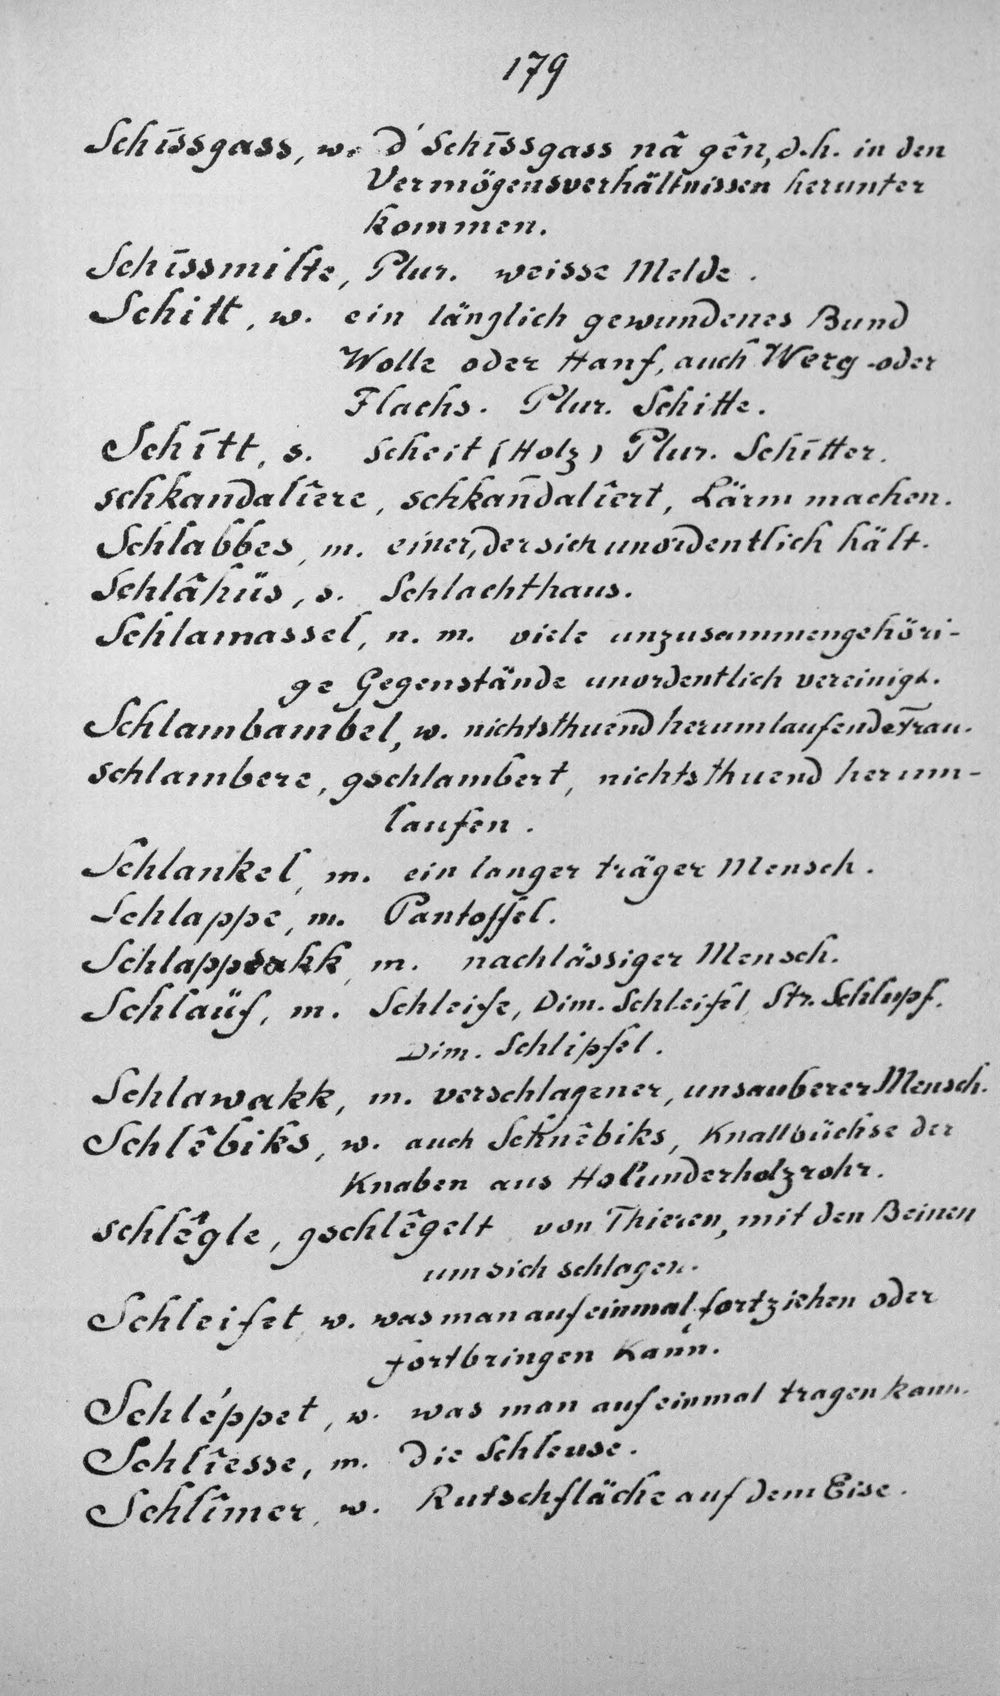 179
Schīssgass, w. d' Schīssgass nâ gên, d.h. in den
Vermögensverhältnissen herunter
kommen.
Schīssmilte, Plur. weisse Melde.
Schitt, w. ein länglich gewundenes Bund
Wolle oder Hanf, auch Werg oder
Flachs. Plur. Schitte.
Schītt, s. Scheit (Holz) Plur. Schītter.
schkandalîere, schkandalîert, Lärm machen.
Schlabbes, m. einer, der sich unordentlich hält.
Schlâhüs, s. Schlachthaus.
Schlamassel, n. m. viele unzusammengehöri-
ge Gegenstände unordentlich vereinigt.
Schlambambel, w. nichtsthuend herumlaufende Frau.
schlambere, gschlambert, nichtsthuend herum-
laufen.
Schlankel, m. ein langer träger Mensch.
Schlappe, m. Pantoffel.
Schlappsakk, m. nachlässiger Mensch.
Schlaüf, m. Schleife, Dim. Schleifel, Str. Schlupf.
Dim. Schlipfel.
Schlawakk, m. verschlagener, unsauberer Mensch.
Schlêbiks, w. auch Schnêbiks, Knallbüchse der
Knaben aus Holunderholzrohr.
schlêgle, gschlêgelt von Thieren, mit den Beinen
um sich schlagen.
Schleifet, w. was man auf einmal fortziehen oder
fortbringen kann.
Schléppet, w. was man auf einmal tragen kann.
Schlîesse, m. die Schleuse.
Schlîmer, w. Rutschfläche auf dem Eise.